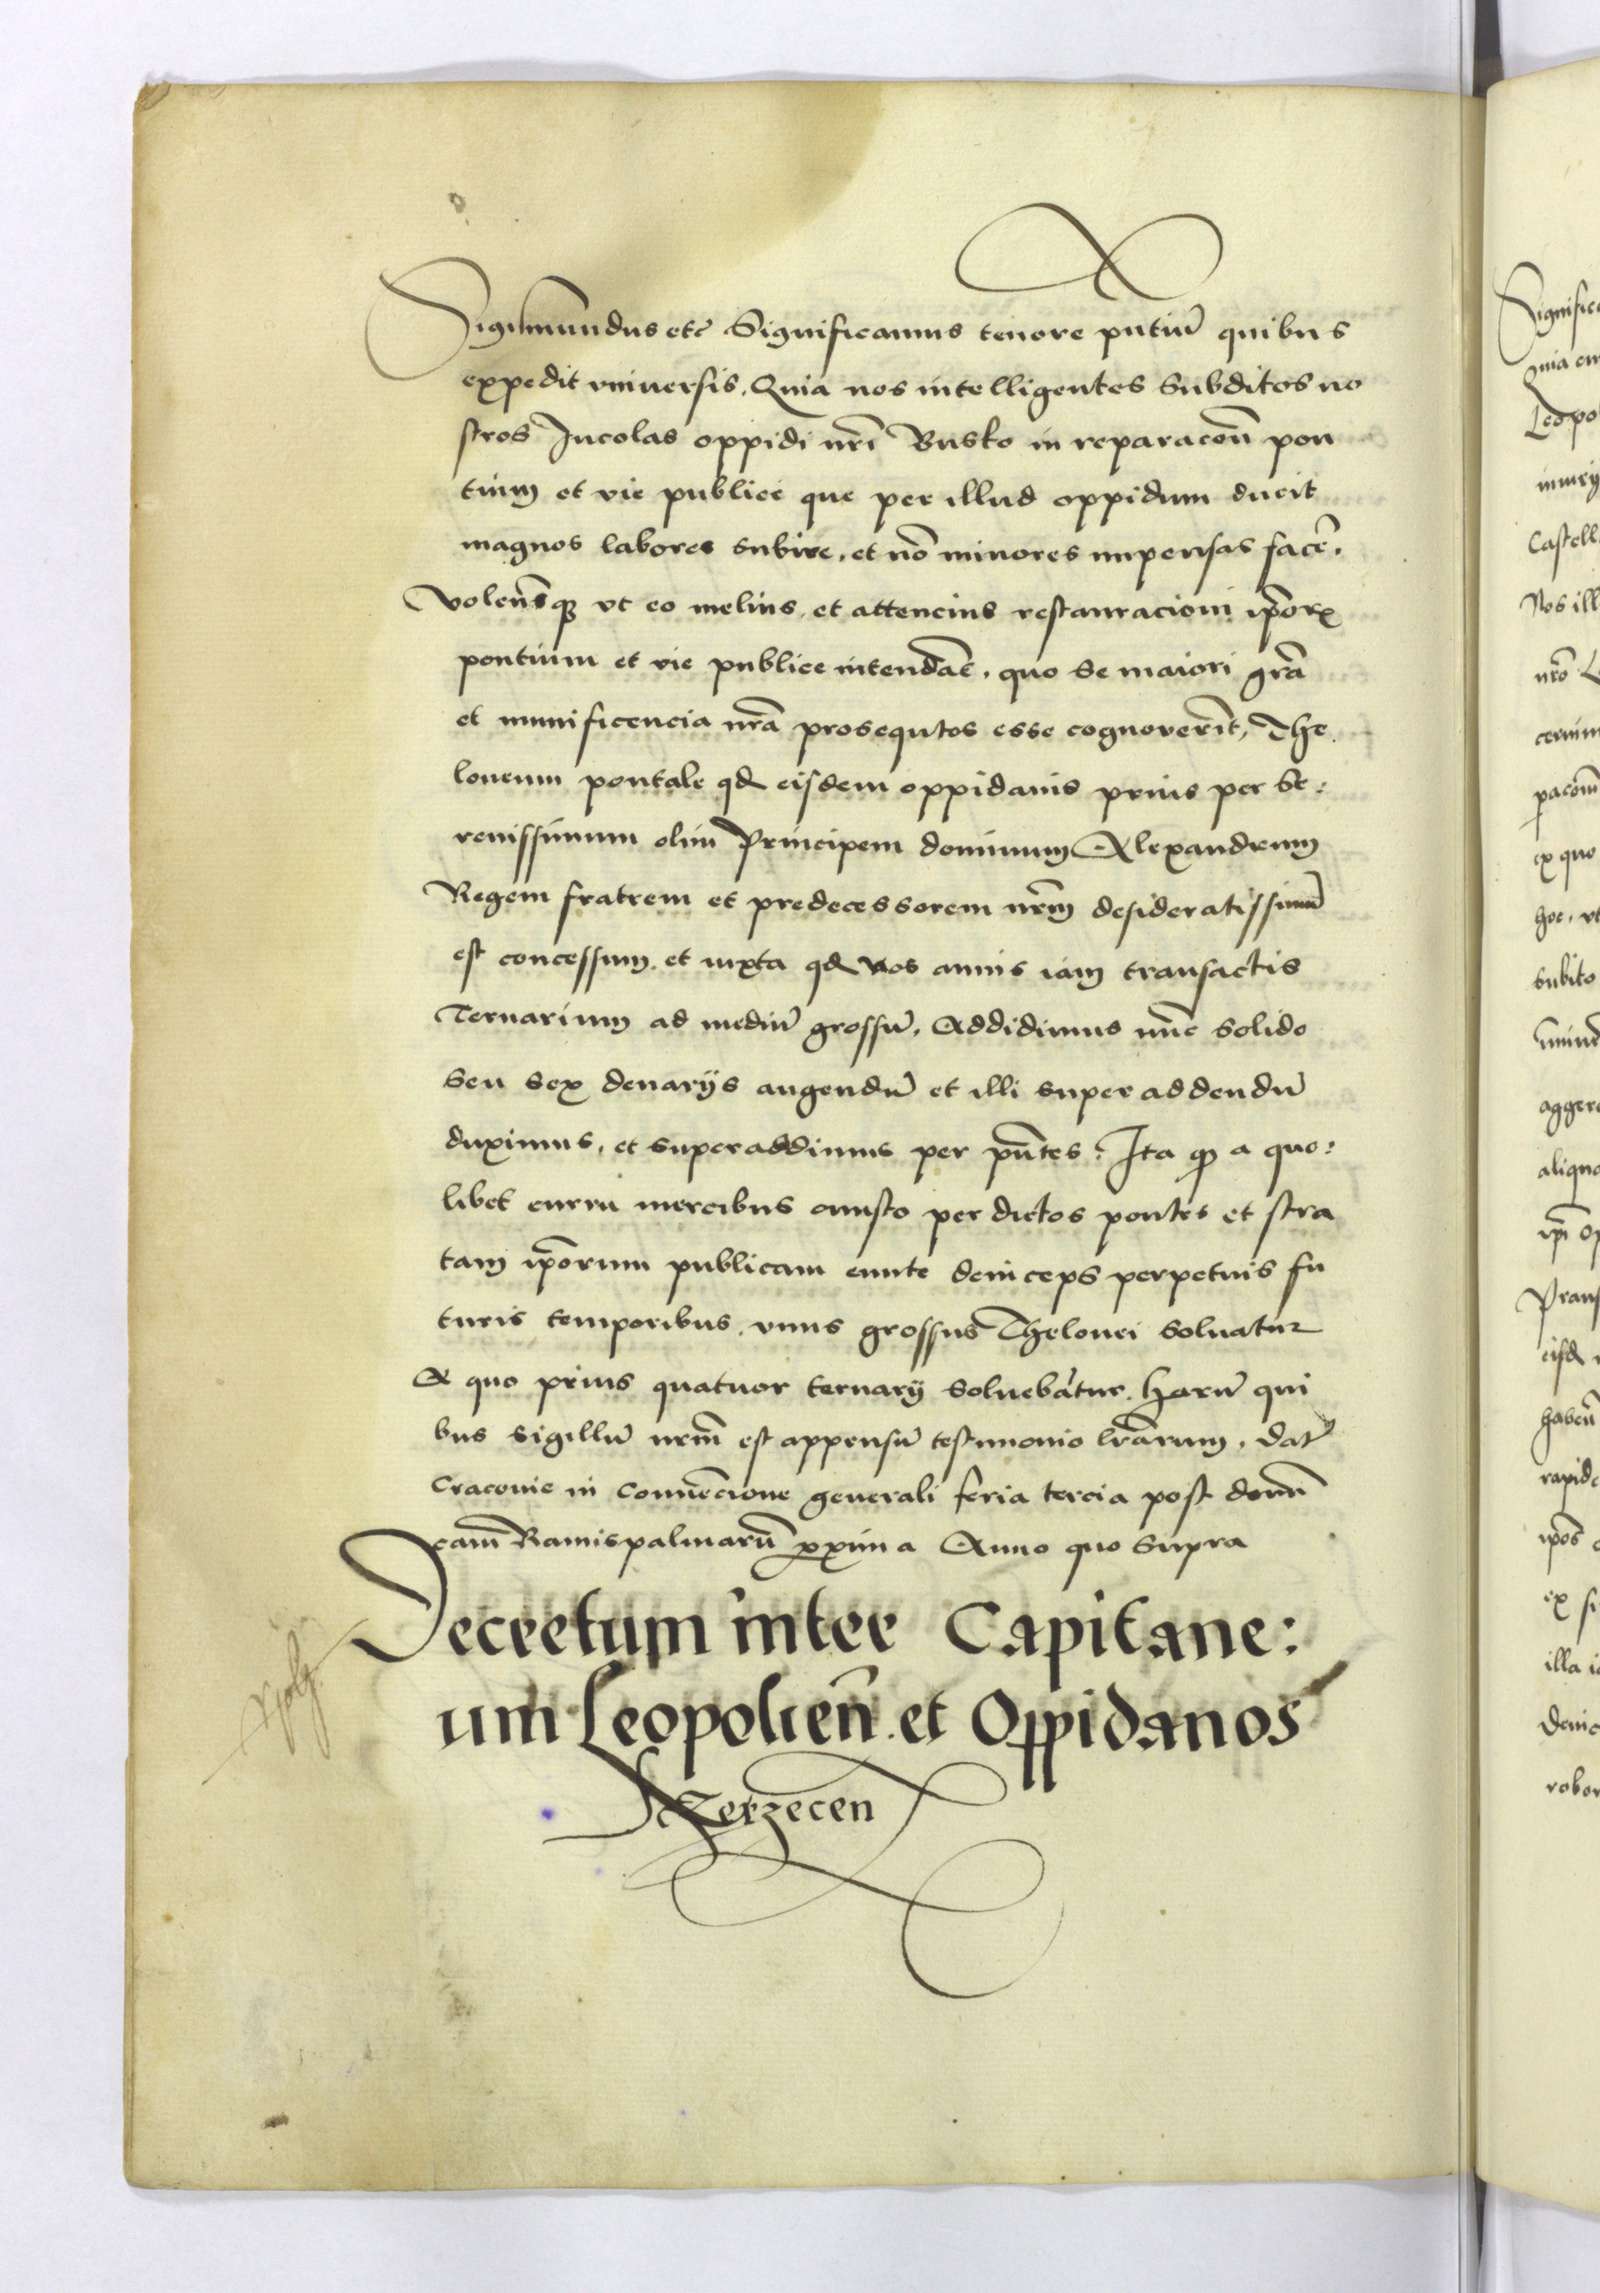 Sigismundus etc Significamus tenore pntiu̅ quibus
expedit vniuersis. Quia nos intelligentes Subditos no
stros Incolas oppidi nr̅i Busko in reparaco̅n pon
tium et vie publice que per illud oppidum ducit
magnos labores subire, et no̅ minores impensas face̅.
volen̅sq3 vt eo melius et attencius restauracioni ip̅orꝝ
pontium et vie publice intenda̅t, quo se maiori gr̅a
et munificencia nr̅a prosequtos esse cognoveri̅t, The
loneum pontale qd eisdem oppidanis prius per Se:
renissimum olim Principem dominum Alexandrum
Regem fratrem et predecessorem nr̅m desideratissimu̅
est concessum et iuxta qd nos annis iam transactis
Ternarium ad mediu̅ grossu̅. Addidimus nu̅c Solido
Seu Sex denarijs augendu̅ et illi superaddendu̅
duximus, et superaddimus per pn̅tes: Ita ꝙ a quo:
libet curru mercibus onusto per dictos pontes et stra
tam ip̅orum publicam eunte deinceps perpetuis fu
turis temporibus vnus grossus Thelonei Soluatur
A quo prius quatuor ternarij Soluebatur. Haru̅ qui
bus sigillu̅ nr̅m est appensu̅ testimonio lr̅arum. dat̅
Cracouie in Conue̅cione generali feria tercia post domi̅
cam̅ Ramispalmaru̅ proxima Anno quo Supra
Decretum inter Capitane:
um Leopolien̅ et Oppidanos